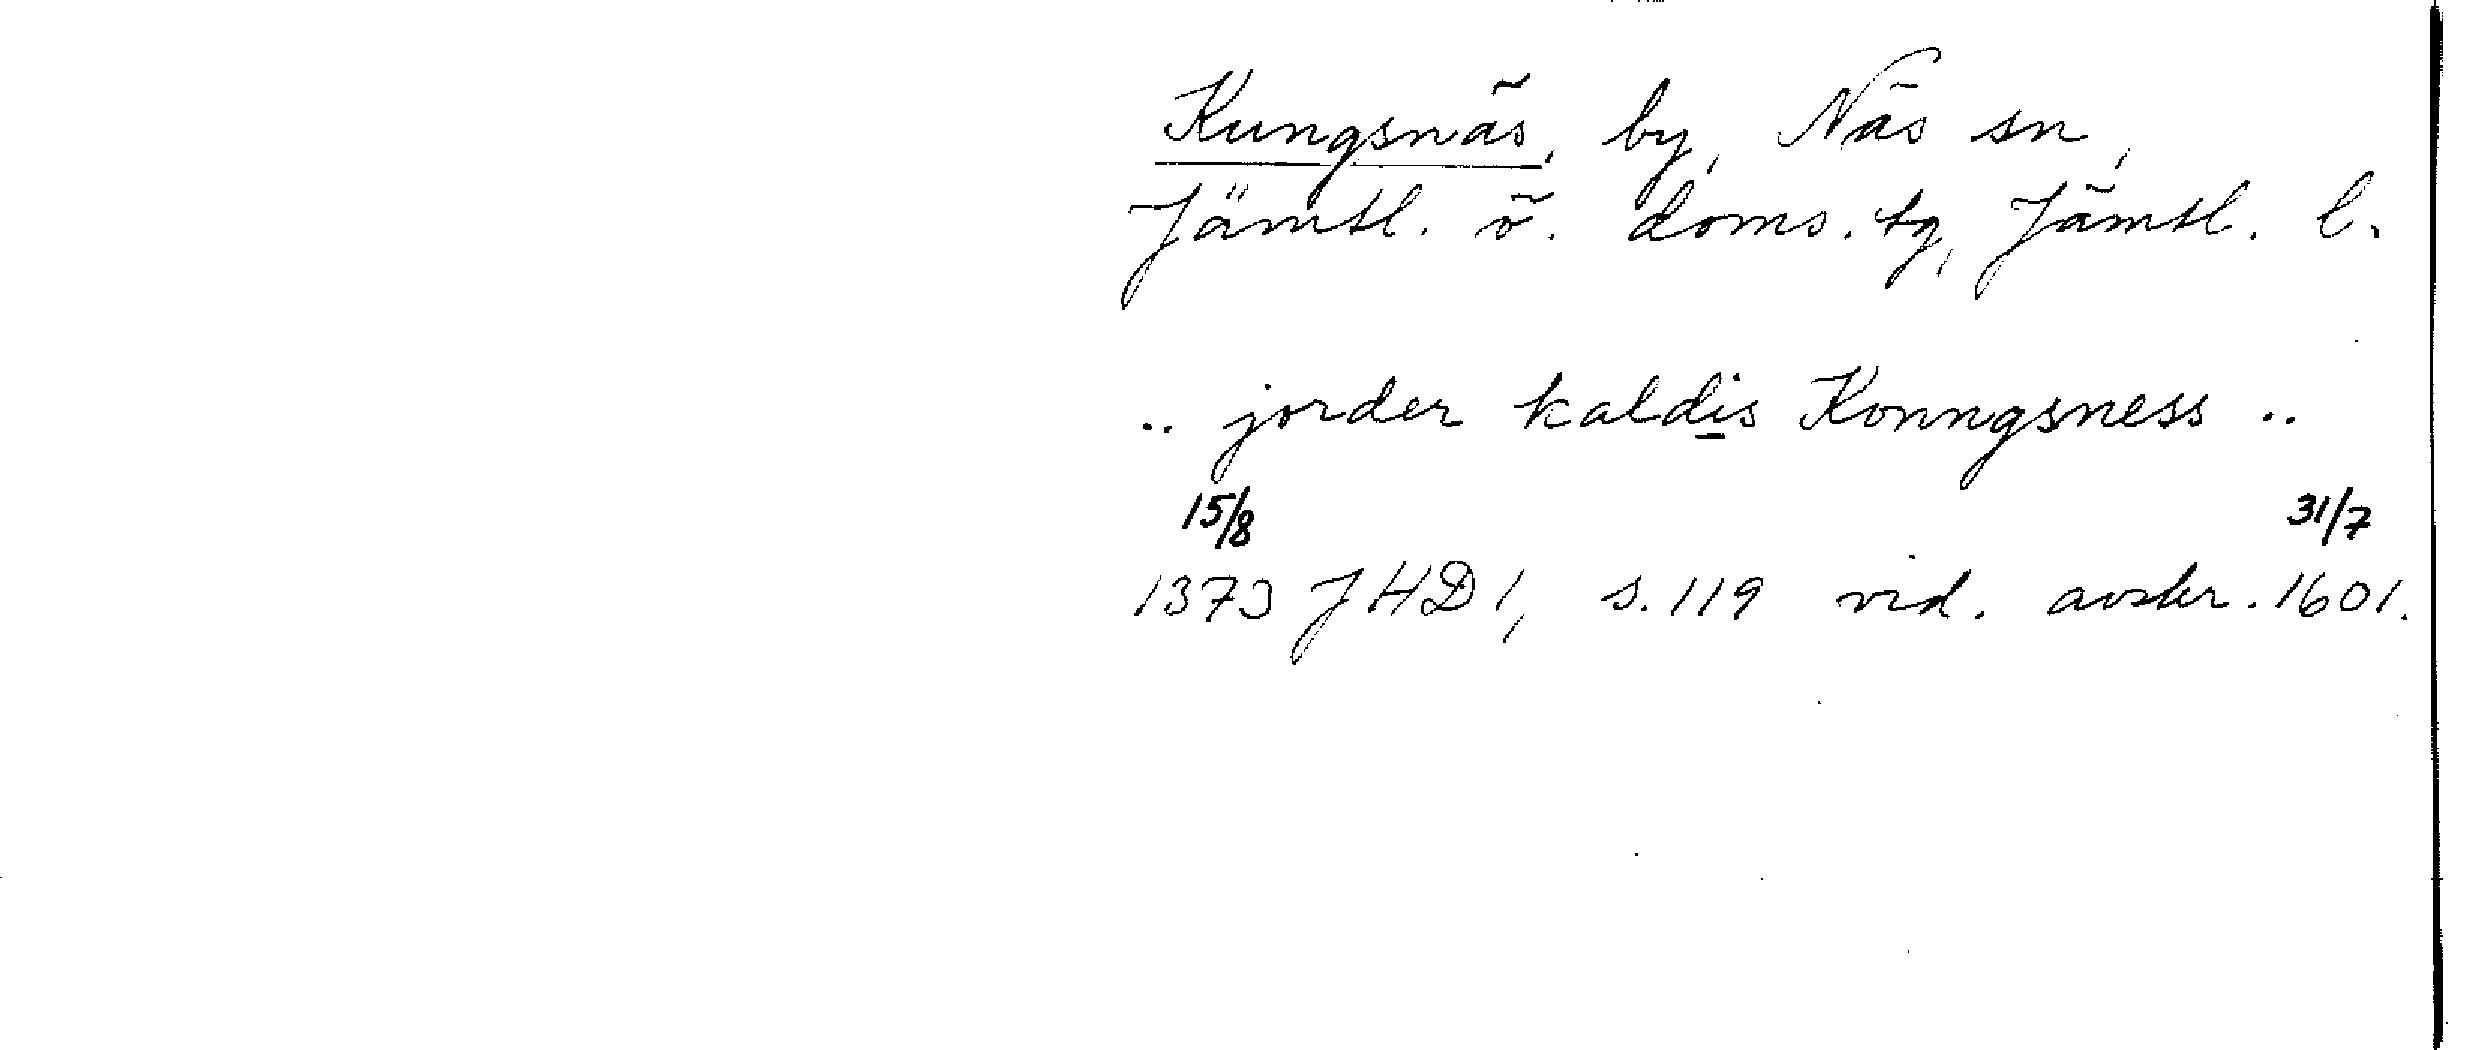 Kungsnäs, by, Näs sn,
Jämtl. ö. doms. tg, Jämtl. l.
.. jorder kaldis Konngsness ..
15/8 31/7
1373 JHD 1, s. 119 vid. avskr. 1601.